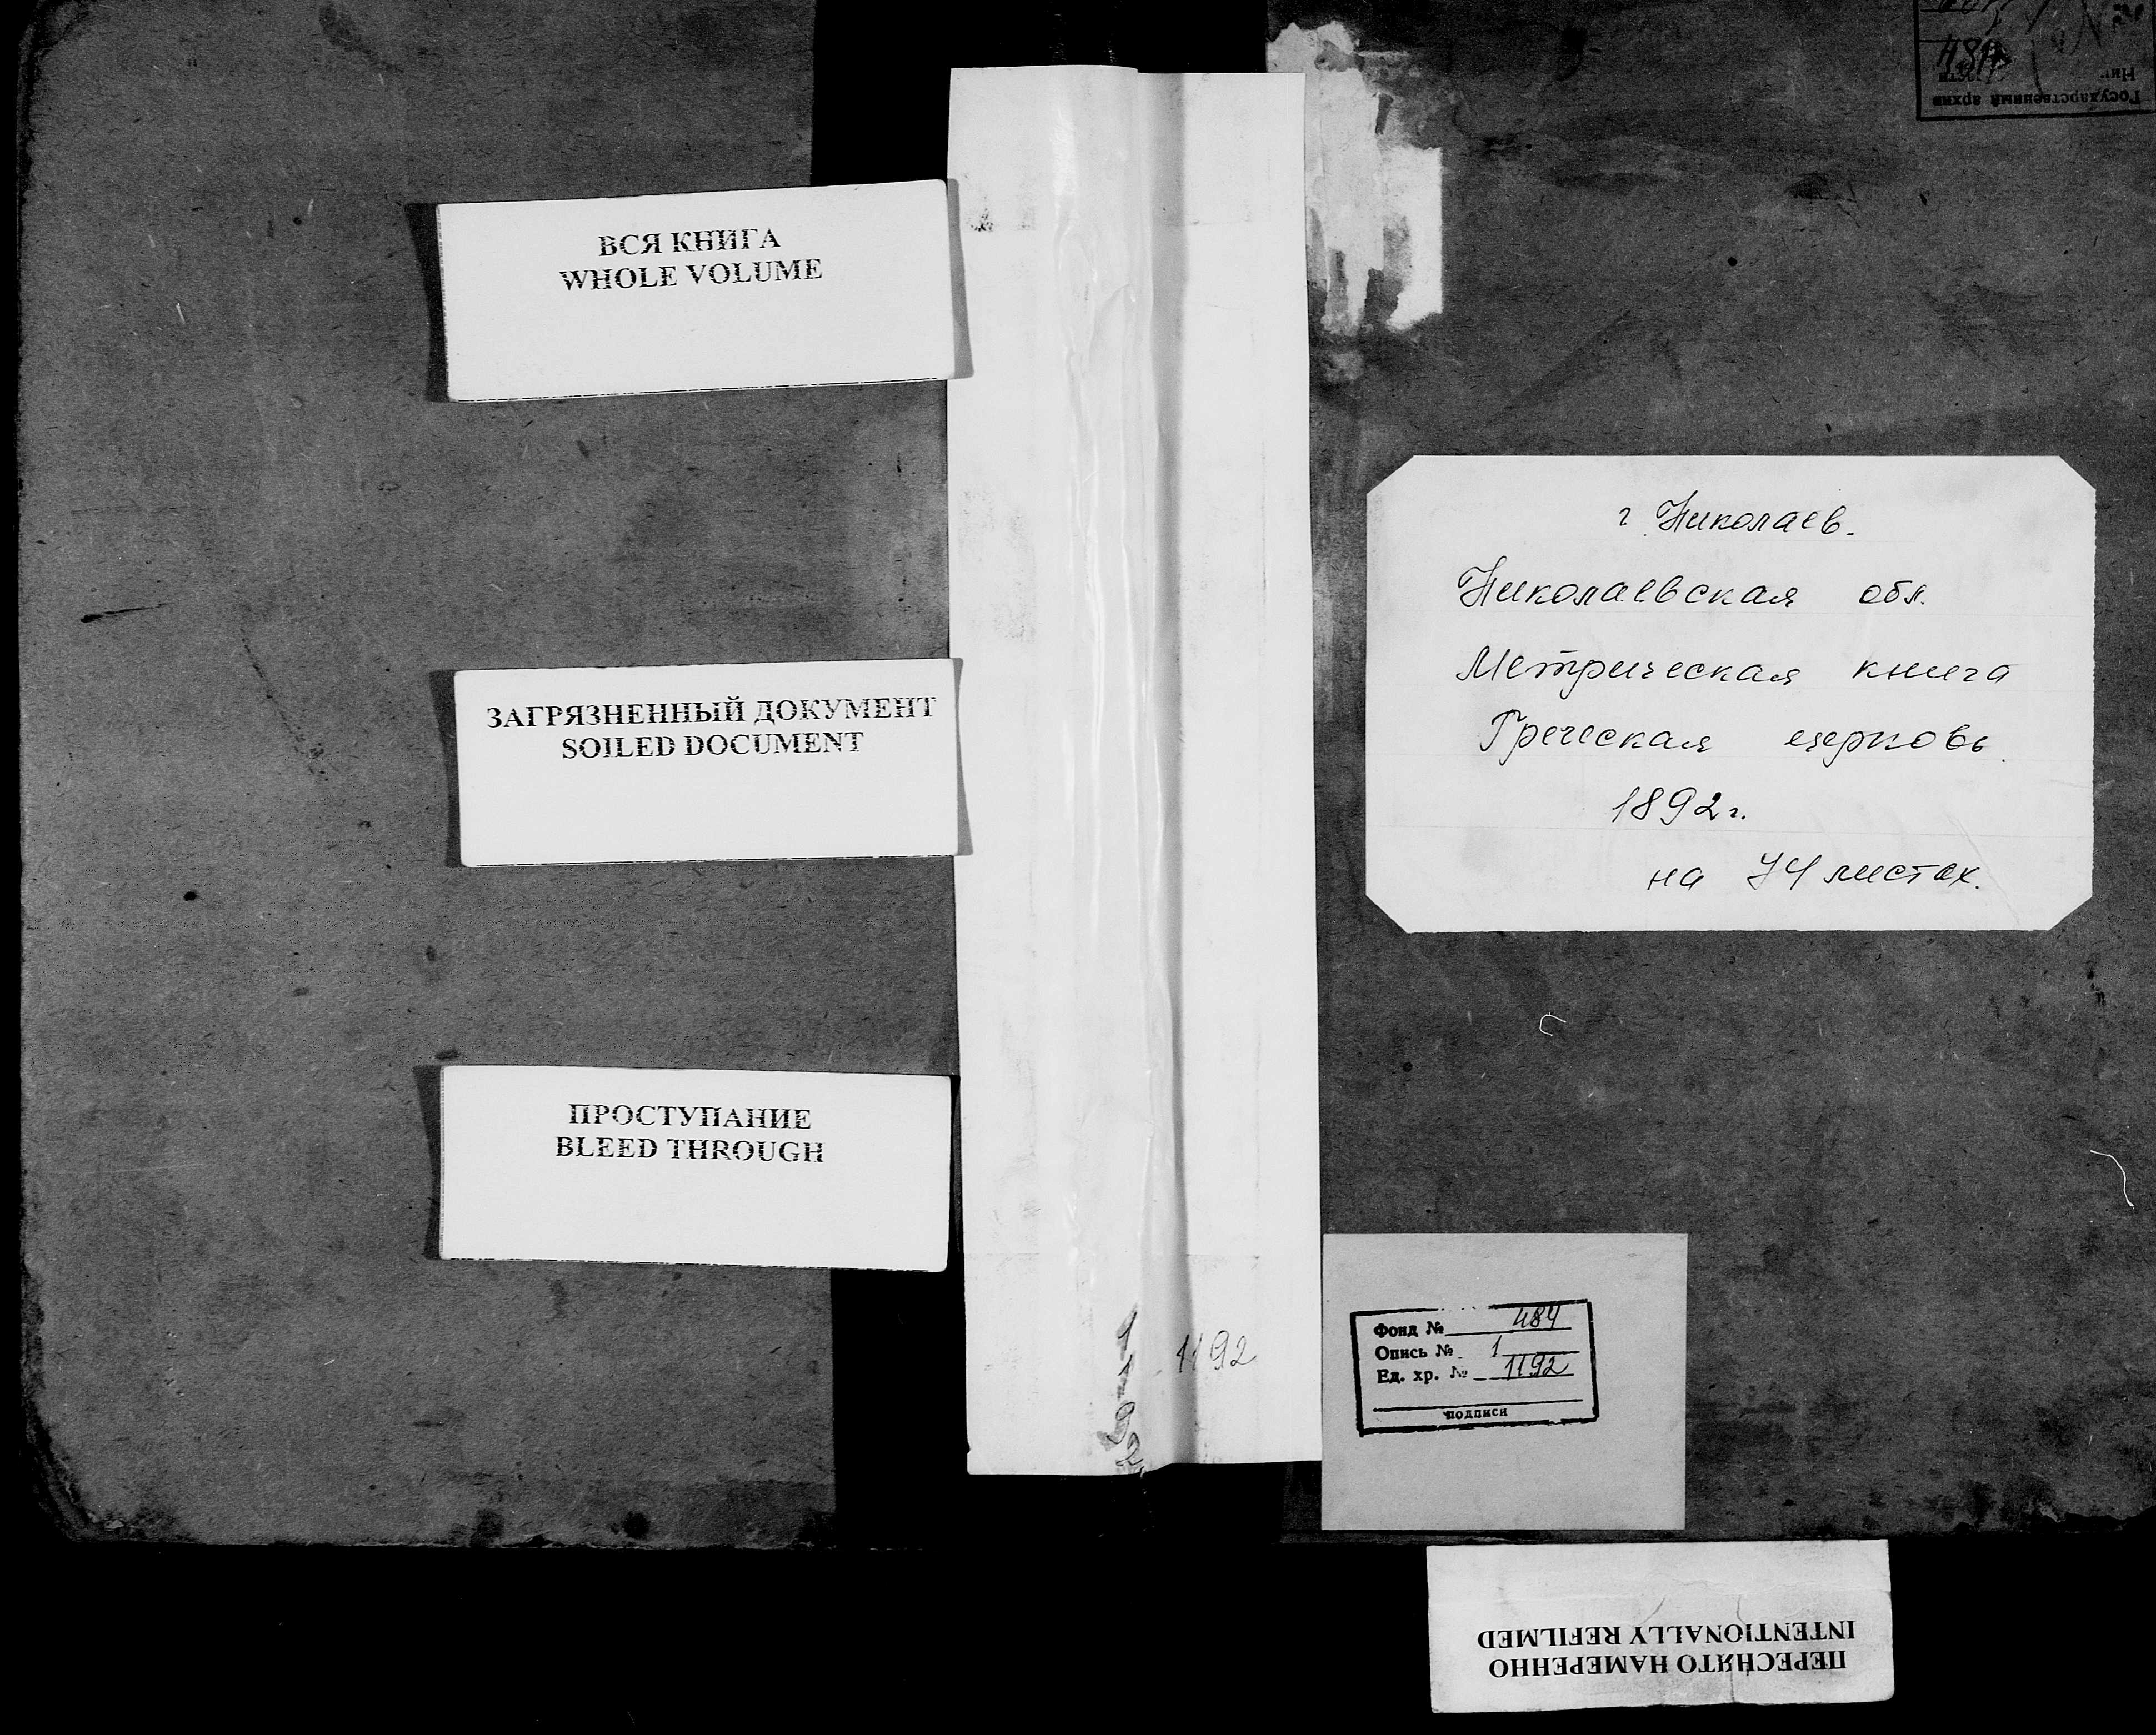 ВСЯ КНИГА
WHOLE VOLUME
ЗАГРЯЗНЕННЫЙ ДОКУМЕНТ
SOILED DOCUMENT
ПРОСТУПАНИЕ
BLEED THROUGH
1192
1192
Государственный архив
484
г. Николаев.
Николаевская обл.
Метрическая книга
Греческая церковь.
1892 г.
на 74 листах.
Фонд № 484
Опись № 1
Ед. хр. № 1192
подписи
ПЕРЕСНЯТО НАМЕРЕННО
INTENTIONALLY REFILMED